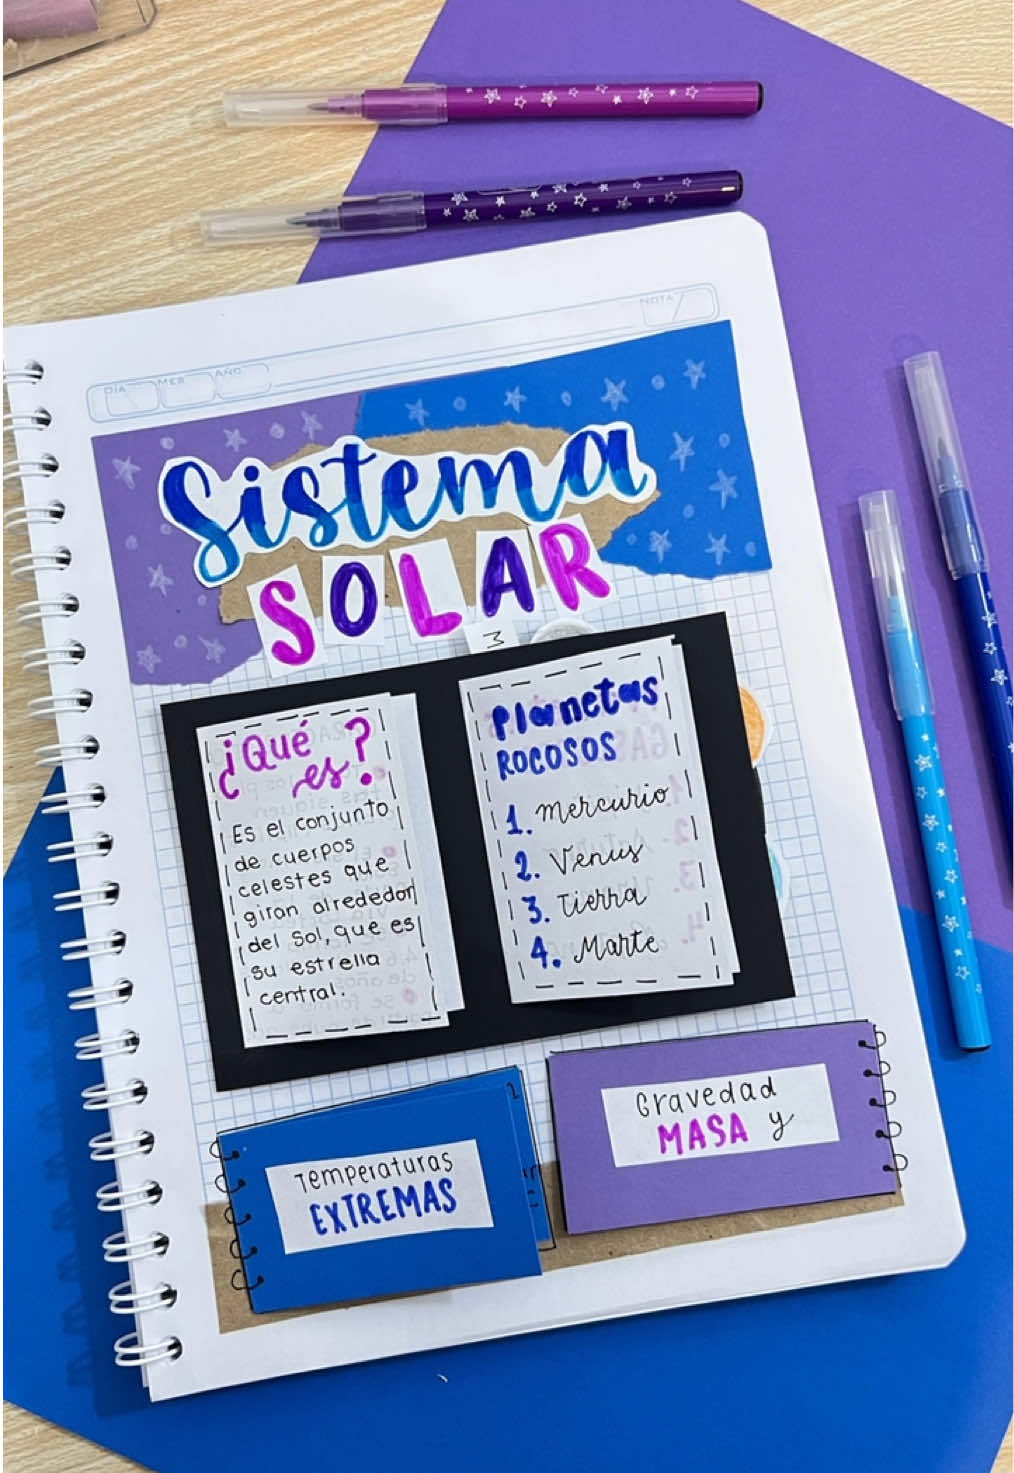 DÍA MES AÑO
NOTA
Sistema
SOLAR
¿Qué
es?
Es el conjunto
de cuerpos
celestes que
giran alrededor
del Sol, que es
su estrella
central.
Planetas
ROCOSOS
1. Mercurio
2. Venus
3. Tierra
4. Marte
Temperaturas
EXTREMAS
Gravedad
MASA y